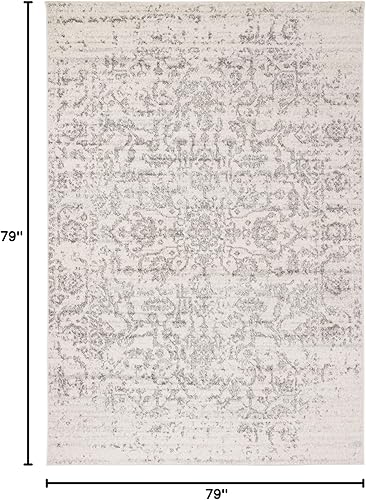 79"
79"